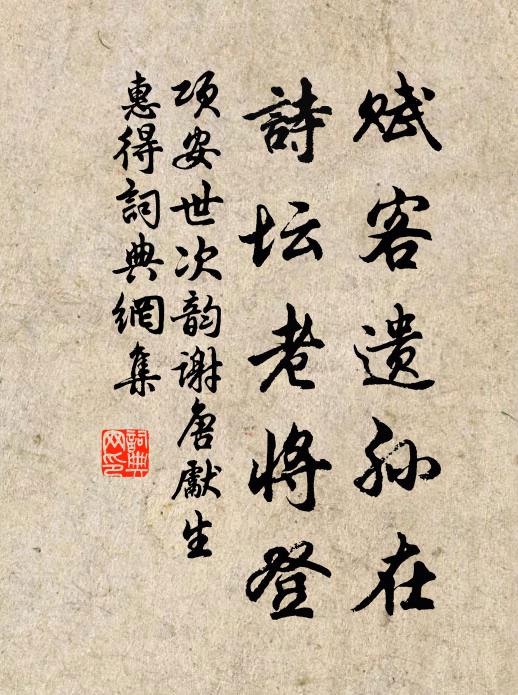 赋客遗孙在
詩坛老将登
项安世次韵谢唐獻生
惠得詞典網集
詞典网印